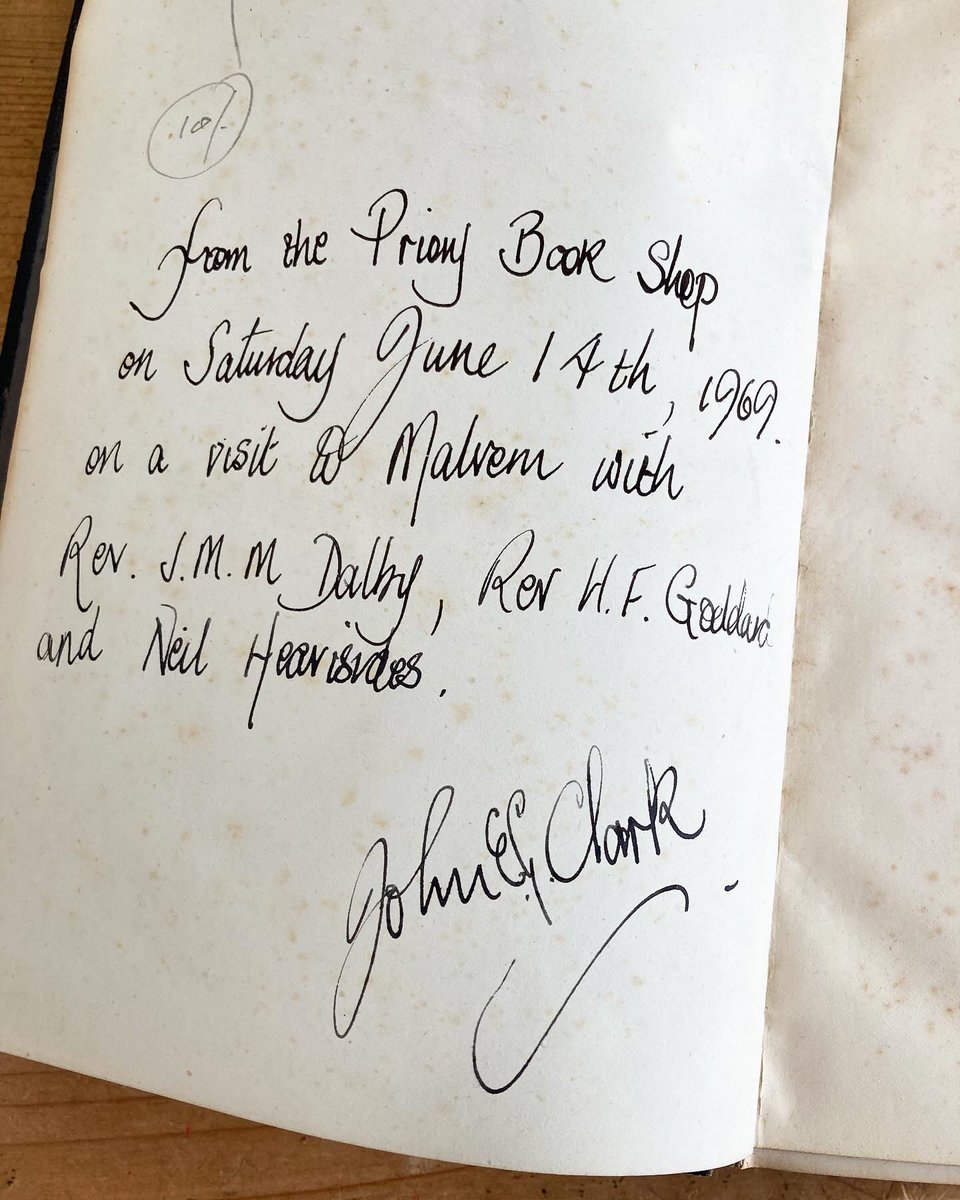 10/-
from the Priory Book Shop
on Saturday June 14th, 1969.
on a visit to Malvern with
Rev. J.M.M Dalby, Rev H.F. Goddard
and Neil Heavisides.
John E.J. Clark